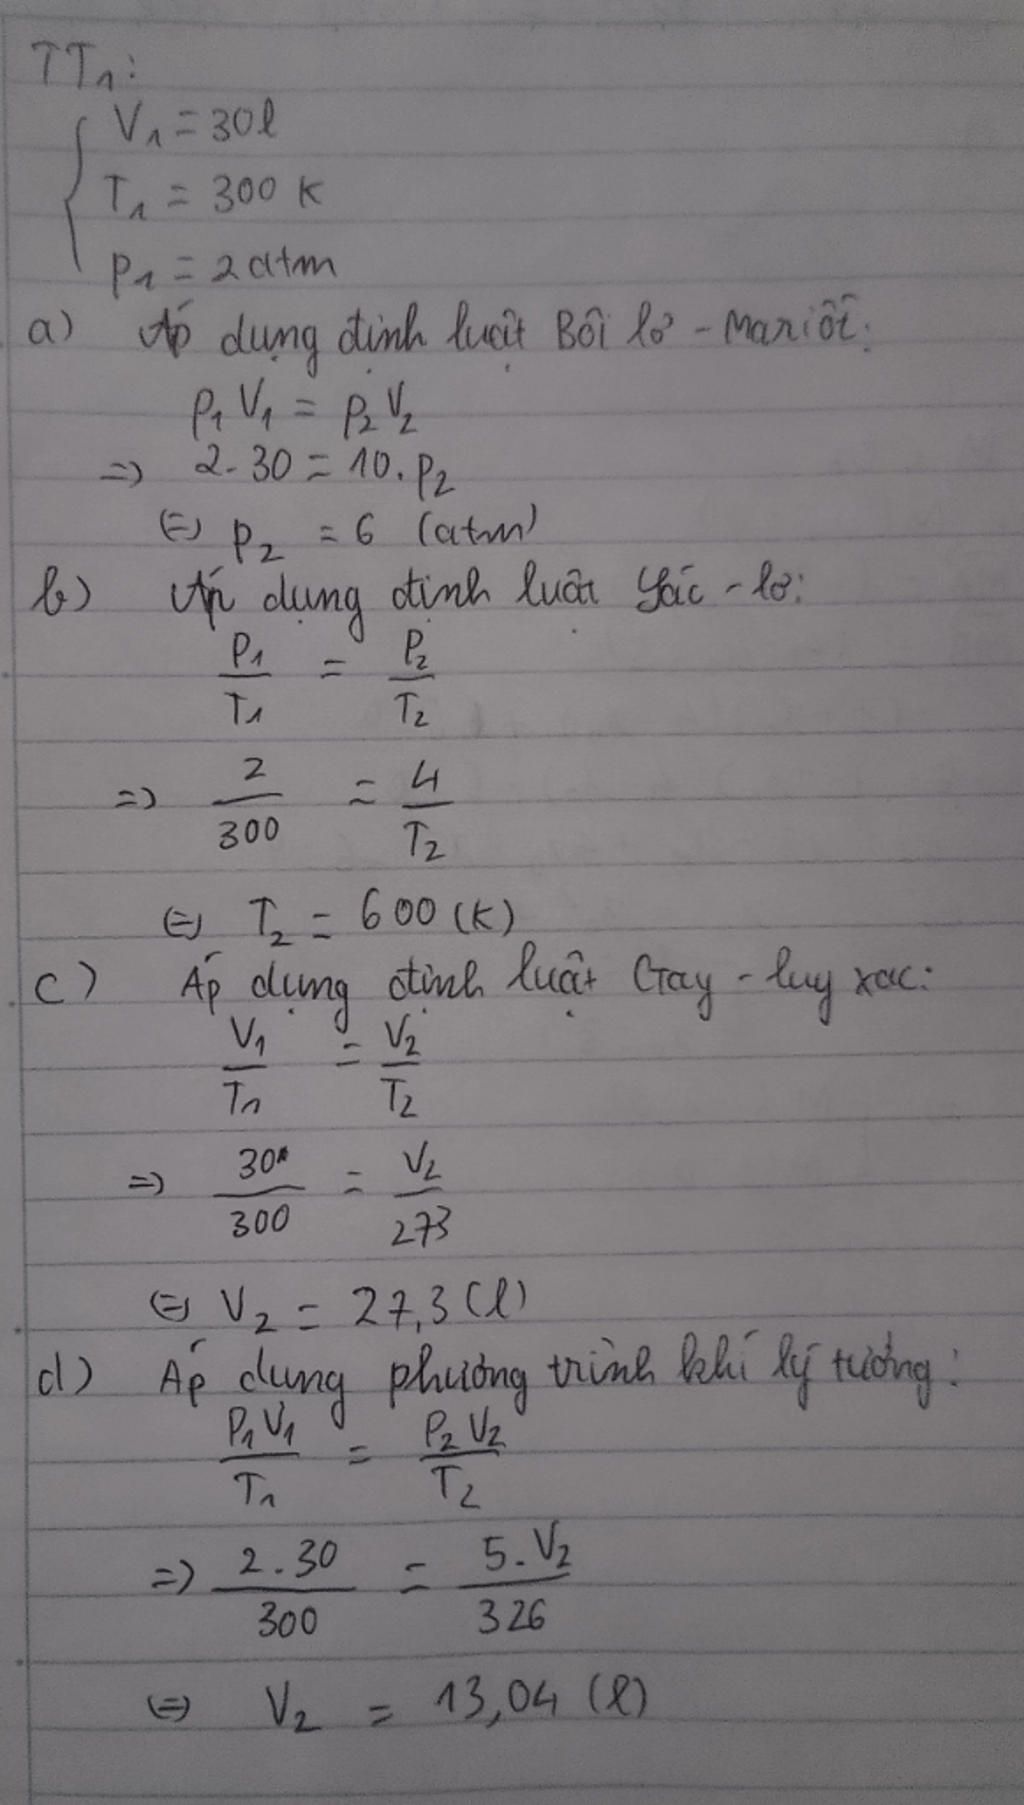 TT1:
V1 = 30l
T1 = 300 K
P1 = 2 atm
a) Áp dụng định luật Bôi lơ - Mariốt:
P1 V1 = P2 V2
=> 2. 30 = 10. P2
(=) P2 = 6 (atm)
b) Áp dụng định luật Sác - lơ:
P1/T1 = P2/T2
=> 2/300 = 4/T2
(=) T2 = 600 (K)
c) Áp dụng định luật Gay - luy xac:
V1/T1 = V2/T2
=> 30/300 = V2/273
(=) V2 = 27,3 (l)
d) Áp dụng phương trình khí lý tưởng:
P1 V1/T1 = P2 V2/T2
=> 2 . 30/300 = 5. V2/326
(=) V2 = 13,04 (l)